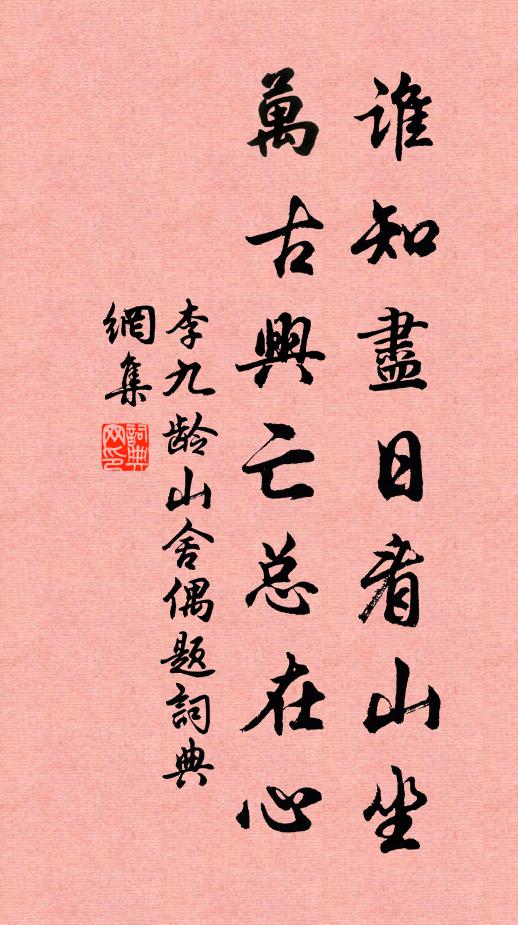 誰知盡日看山坐
萬古興亡总在心
李九龄山舍偶题詞典
網集
詞典
网印